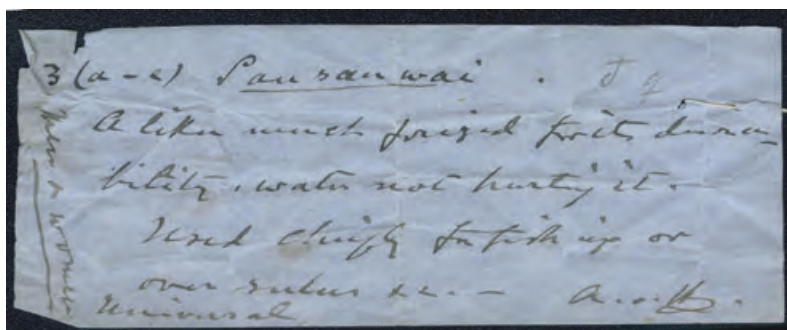 3 (a-c) Sausauwai .
A liku much prized for its dura-
bility, water not hurting it.
Used chiefly for fishing or
over sulus &c. —
Universal
Men & Women